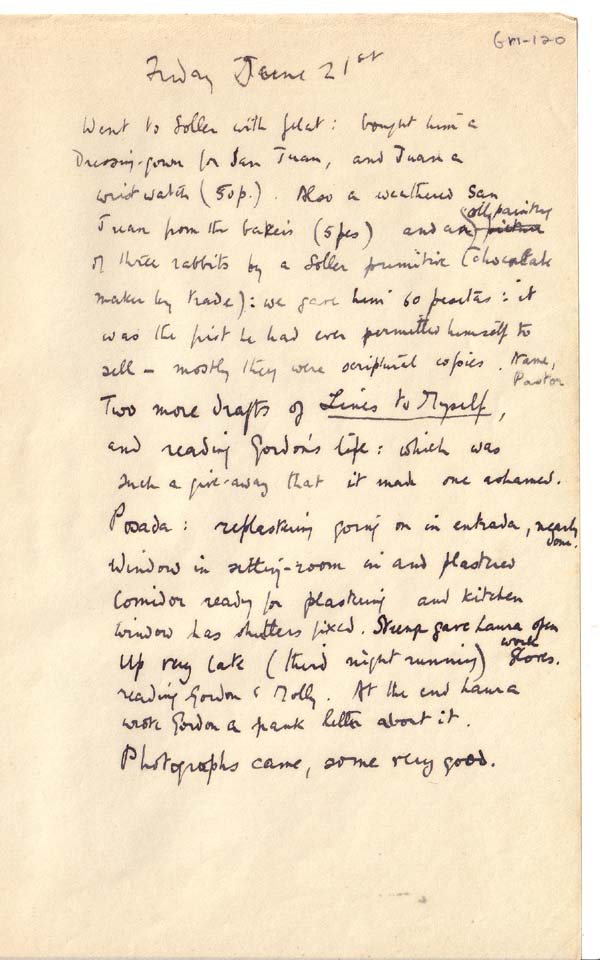 GM-120
Friday June 21st
Went to Soller with Gelat: bought him a
Dressing-gown for San Juan, and Juan a
wrist watch (50p.). Also a weathered San
Juan from the bakers (5pes) and an oil painting picture
of three rabbits by a Soller primitive (chocolate
maker by trade): we gave him 60 pesetas: it
was the first he had ever permitted himself to
sell – mostly they were scriptural copies. Name,
Pastor
Two more drafts of Lines to Myself,
and reading Gordon's life: which was
such a give-away that it made one ashamed.
Posada: replastering going on in entrada, nearly
done.
Window in sitting-room in and plastered
Corridor ready for plastering and kitchen
window has shutters fixed. gave Laura open
work
Up very late (third night running) gloves.
reading Gordon & Molly. At the end Laura
wrote Gordon a frank letter about it.
Photographs came, some very good.